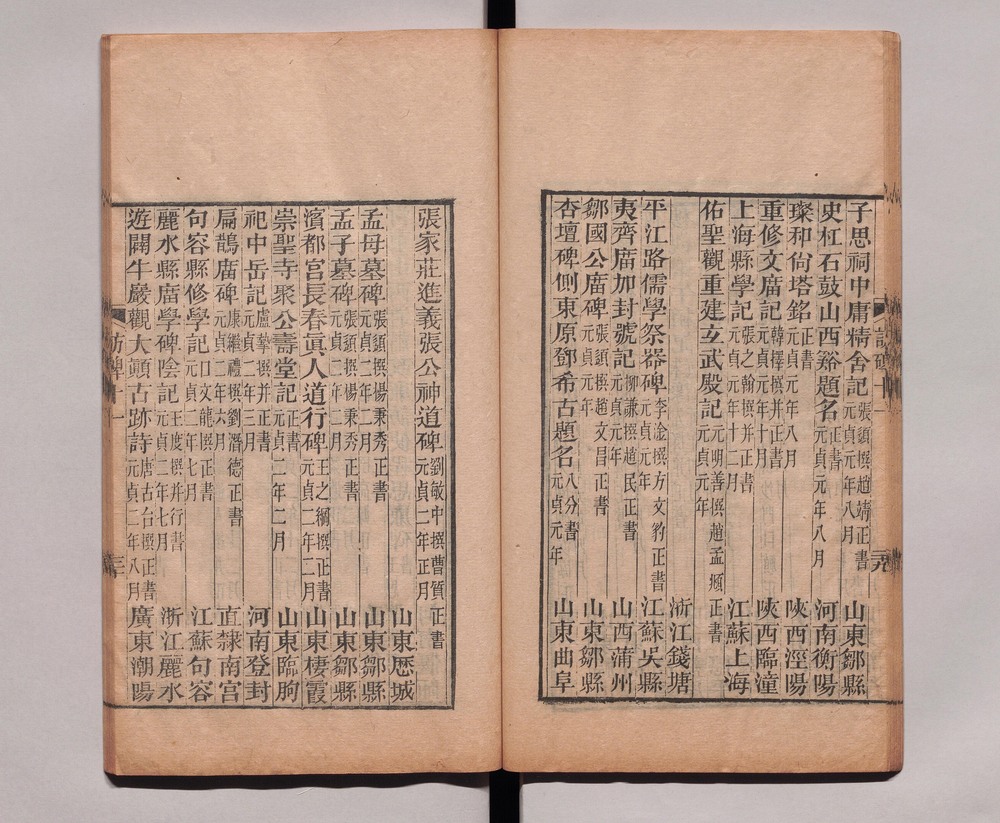 子思祠中庸精舍記 張𩓣撰趙靖正書 元貞元年八月 山東鄒縣
史杠石鼓山西谿題名 正書 元貞元年八月 河南衡陽
璨和尙塔銘 正書 元貞元年八月 陝西涇陽
重修文廟記 韓擇撰并正書 元貞元年十月 陝西臨潼
上海縣學記 張之翰撰并正書 元貞元年十二月 江蘇上海
佑聖觀重建玄武殿記 元明善撰趙孟頫正書 元貞元年 浙江錢塘
平江路儒學祭器碑 李淦撰方文豹正書 元貞元年 江蘇吳縣
夷齊廟加封號記 柳謙撰趙民正書 元貞元年 山西蒲州
鄒國公廟碑 張𩓣撰趙文昌正書 元貞元年 山東鄒縣
杏壇碑側東原鄧希古題名 八分書 元貞元年 山東曲阜
張家莊進義張公神道碑 劉敏中撰曹質正書 元貞二年正月 山東歷城
孟母墓碑 張𩓣撰楊秀正書 元貞二年二月 山東鄒縣
孟子墓碑 張𩓣撰楊秉秀正書 元貞二年二月 山東鄒縣
濱都宮長春眞人道行碑 王之綱撰正書 元貞二年二月 山東棲霞
崇聖寺聚公壽堂記 正書 元貞二年二月 山東臨朐
祀中岳記 盧摯撰并正書 元貞二年三月 河南登封
扁鵲廟碑 康繼禮撰劉潛德正書 元貞二年六月 直隸南宮
句容縣修學記 口文龍撰正書 元貞二年七月 江蘇句容
麗水縣廟學碑陰記 王度撰并行書 元貞二年七月 浙江麗水
遊闢牛巖觀大顚古跡詩 唐古台撰正書 元貞二年八月 廣東潮陽